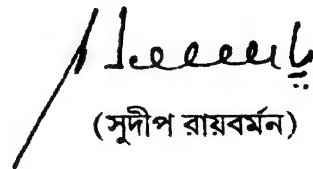 (সুদীপ রায়বর্মন)